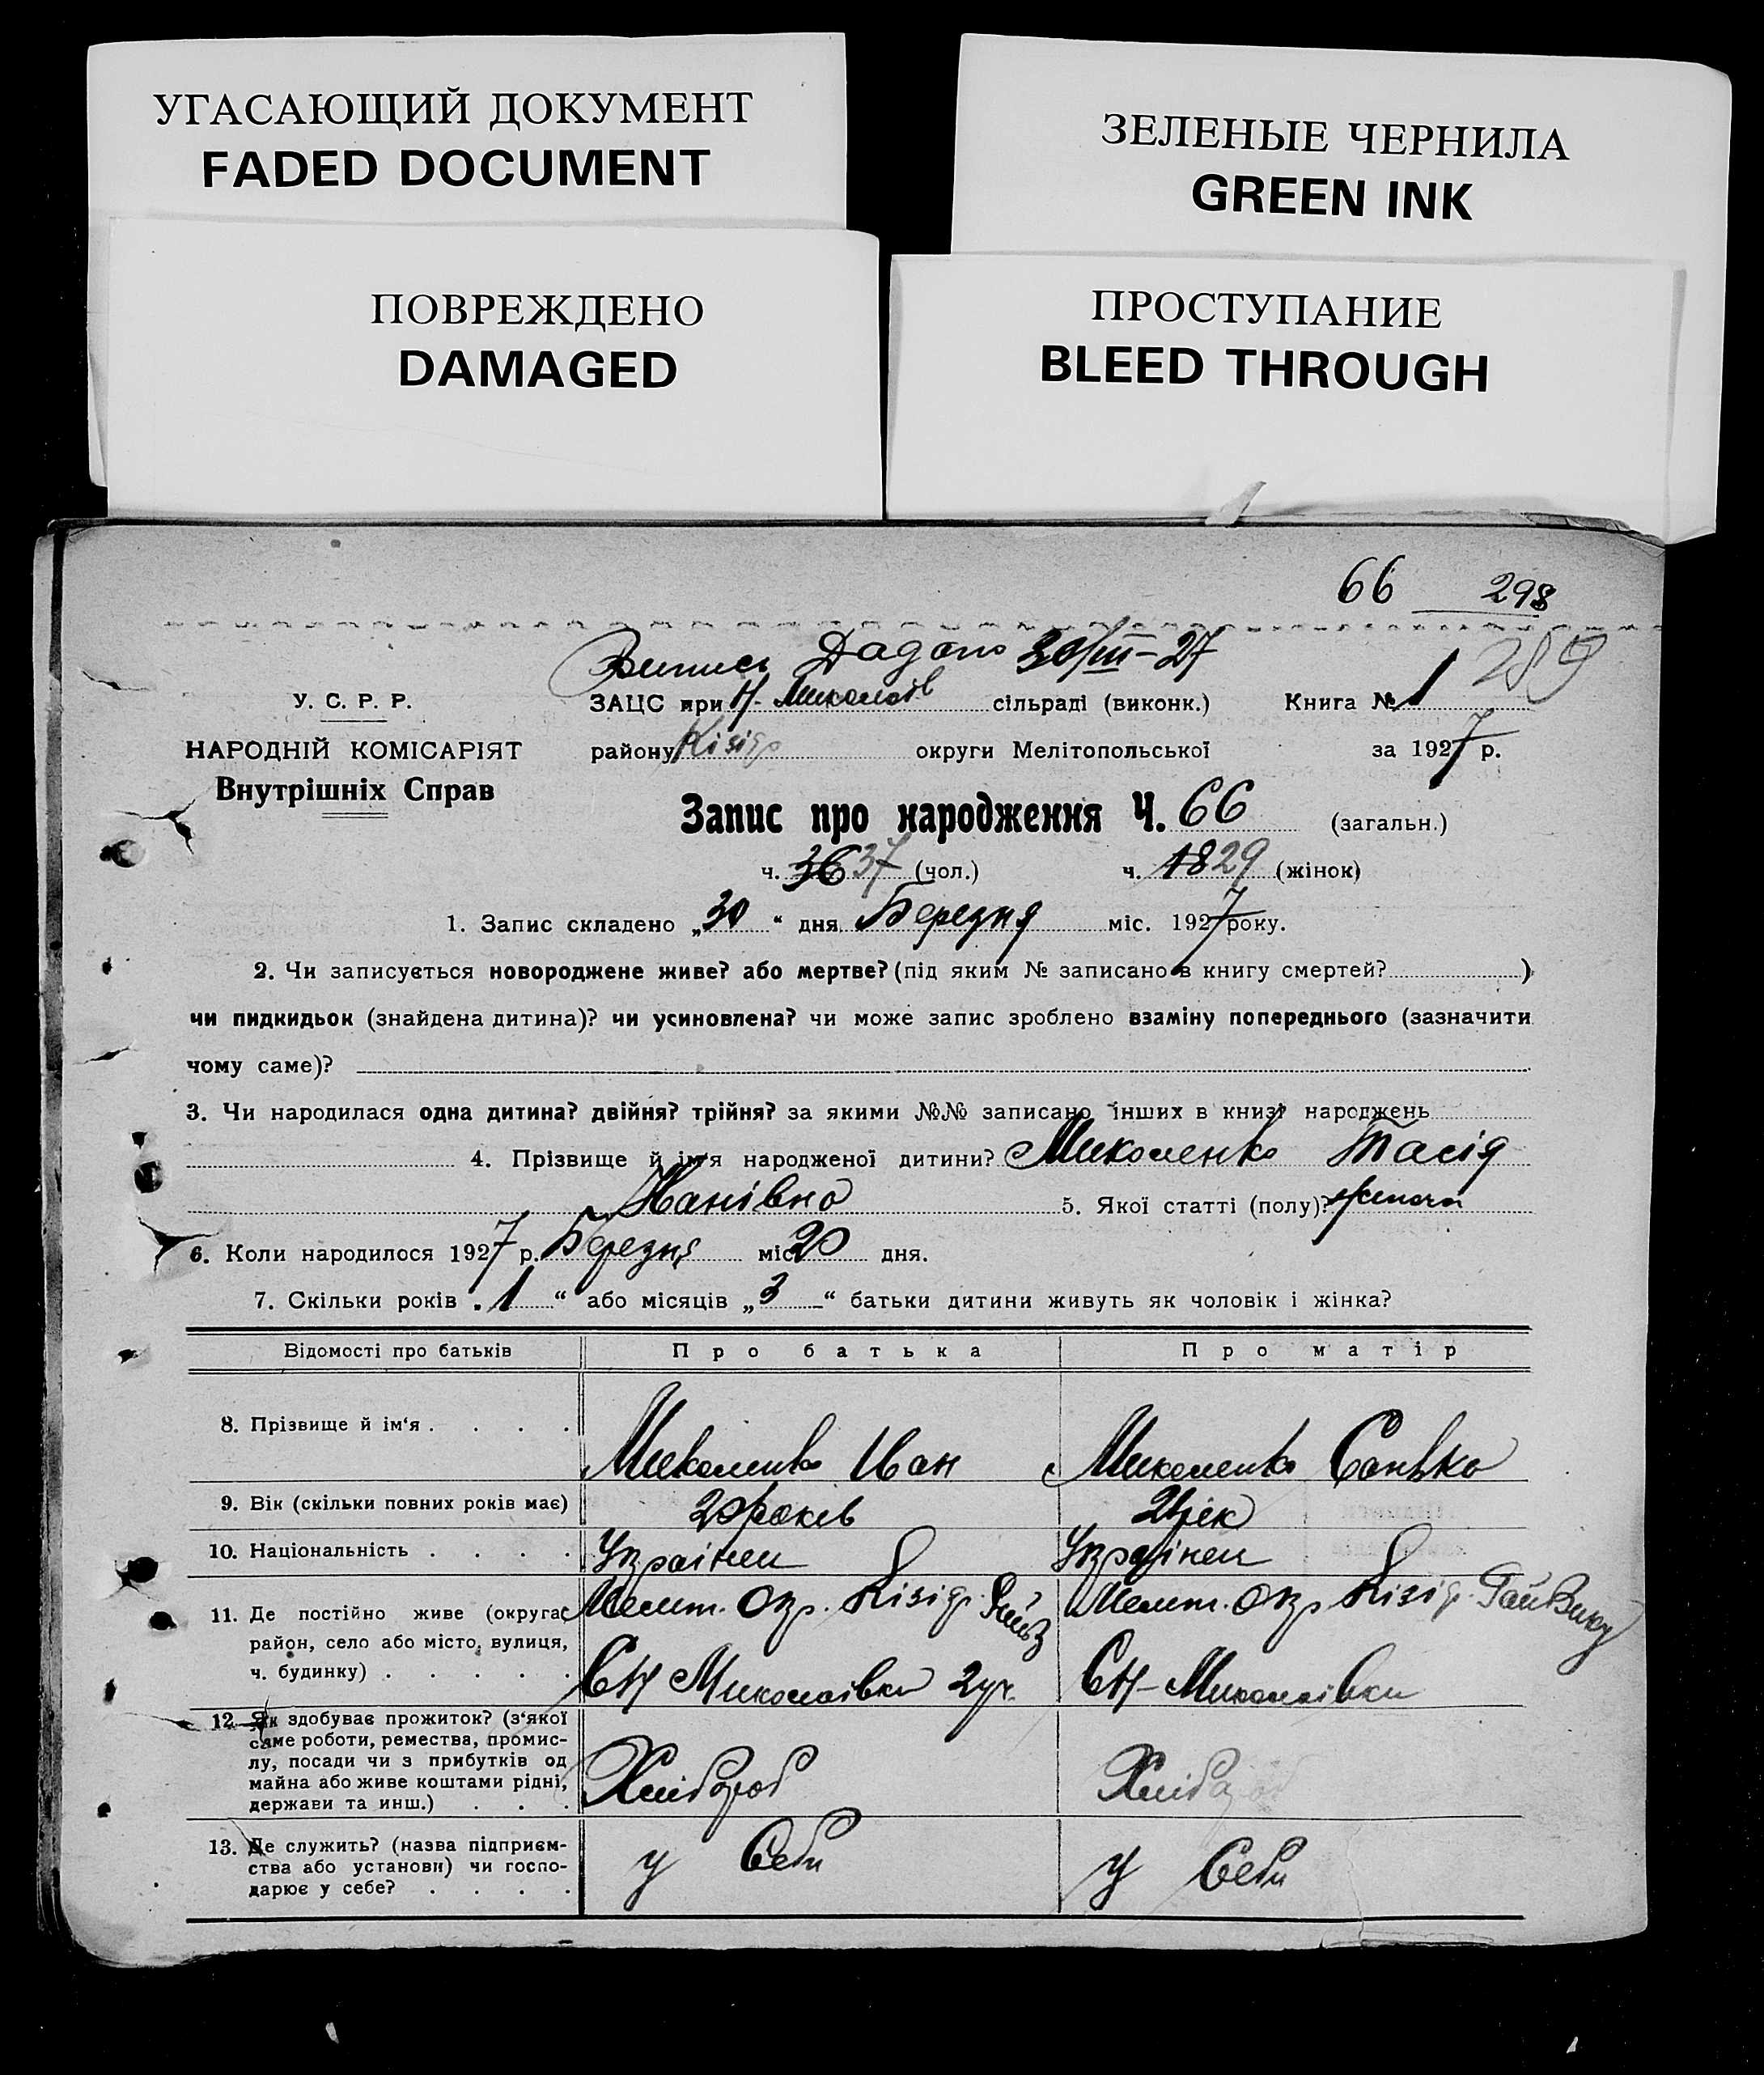 УГАСАЮЩИЙ ДОКУМЕНТ
FADED DOCUMENT
ЗЕЛЕНЫЕ ЧЕРНИЛА
GREEN INK
ПОВРЕЖДЕНО
DAMAGED
ПРОСТУПАНИЕ
BLEED THROUGH
66 298
Випись Дадано 30/III-27 289
У. С. Р. Р.
ЗАЦС при Н-Миколаїв сільраді (виконк.) Книга № 1
НАРОДНІЙ КОМІСАРІЯТ
району Кізіяр округи Мелітопольської за 1927 р.
Внутрішніх Справ
Запис про народження Ч. 66 (загальн.)
ч. 36 37 (чол.) ч. 18 29 (жінок)
1. Запис складено „30“ дня Березня міс. 1927 року.
2. Чи записується новороджене живе? або мертве? (під яким № записано в книгу смертей? )
чи пидкидьок (знайдена дитина)? чи усиновлена? чи може запис зроблено взаміну попереднього (зазначити
чому саме)?
3. Чи народилася одна дитина? двійня? трійня? за якими №№ записано інших в книзі народжень
4. Прізвище й ім'я народженої дитини? Миколенко Тасія
Ианівна 5. Якої статті (полу)? жіноча
6. Коли народилося 1927 р. Березня міс 20 дня.
7. Скільки років „1“ або місяців „3“ батьки дитини живуть як чоловік і жінка?
Відомості про батьків Про батька Про матір
8. Прізвище й ім'я . . . . Миколенко Иван Миколенко Санько
9. Вік (скільки повних років має) 20 років 21 рік
10. Національність . . . . Українец Українец
11. Де постійно живе (округа, район, село або місто, вулиця, ч. будинку) . . . . .
Мелит. Окр. Кізіяр. Мелит. Окр Кізіяр.
С Н Миколаівки 2 уч. С Н-Миколаівки
12. Як здобуває прожиток? (з'якої саме роботи, ремества, промислу, посади чи з прибутків од майна або живе коштами рідні, держави та инш.) . . .
Хлібороб Хлібороб
13. Де служить? (назва підприємства або установи) чи господарює у себе? . . . .
у Себи у Себи